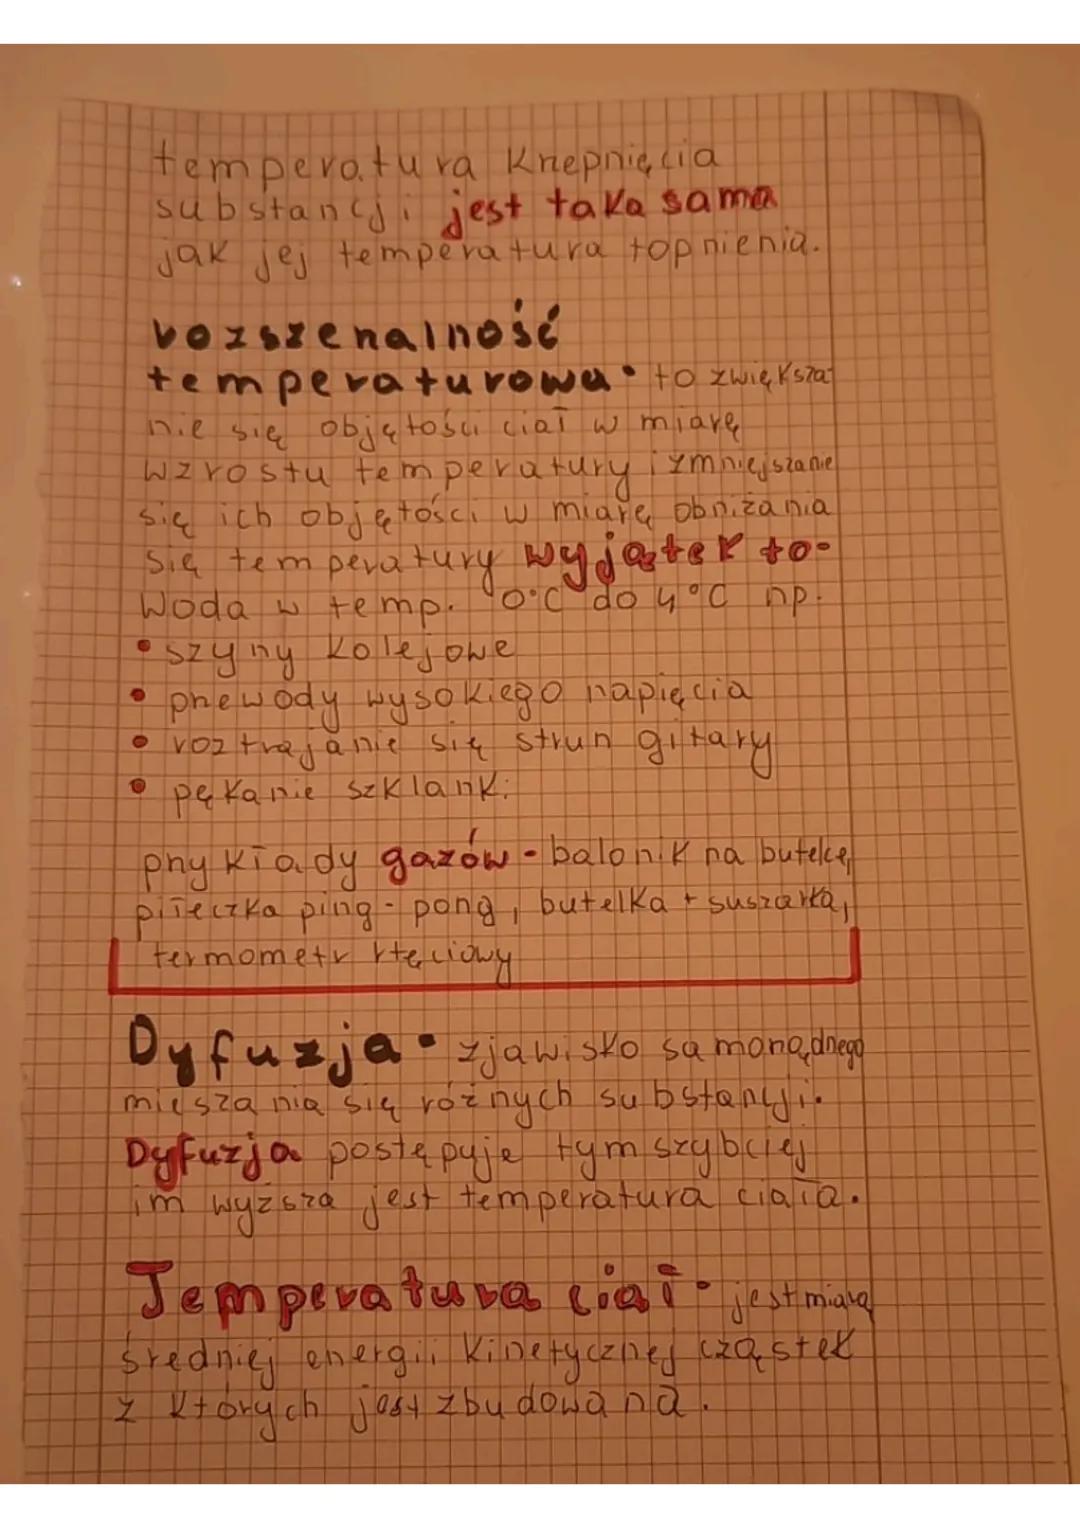 temperatura krzepnięcia
substancji jest taka sama
jak jej temperatura topnienia.
rozszerzalność
temperaturowa • to zwiększa
nie się objętości ciał w miarę
wzrostu temperatury i zmniejszanie
się ich objętości w miarę obniżania
się temperatury wyjątek to-
Woda w temp. 0°C do 4°C np.
• szyny kolejowe
• przewody wysokiego napięcia
• roztrajanie się strun gitary
• pękanie szklanki
przykłady gazów - balonik na butelce,
piłeczka ping-pong, butelka + suszarka,
termometr rtęciowy
Dyfuzja • zjawisko samorządnego
mieszania się różnych substancji.
Dyfuzja postępuje tym szybciej
im wyższa jest temperatura ciała.
Temperatura ciał • jest miarą
średniej energii kinetycznej cząstek
z których jest zbudowana.